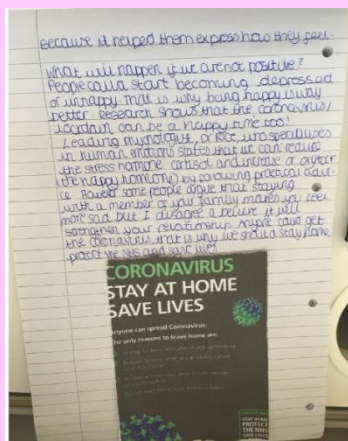 because it helped them express how they feel.
What will happen if we are not positive?
People could start becoming depressed
or unhappy. That is why being happy is way
better. Research shows that the coronavirus/
lockdown can be a happy time too!
Leading, or Rice, who specialises
in human states that we can reduce
the stress hormone cortisol and or
(the happy hormone) by following practical
some people argue that staying
with a member of your family makes you feel
more sad but I disagree I believe it will
strengthen your relationship. Anyone could get
the coronavirus that is why we should stay home,
protect the NHS and save lives
CORONAVIRUS
STAY AT HOME
SAVE LIVES
Anyone can spread Coronavirus
The only reasons to leave home are:
STAY HOME
PROTECT
THE NHS
SAVE LIVES